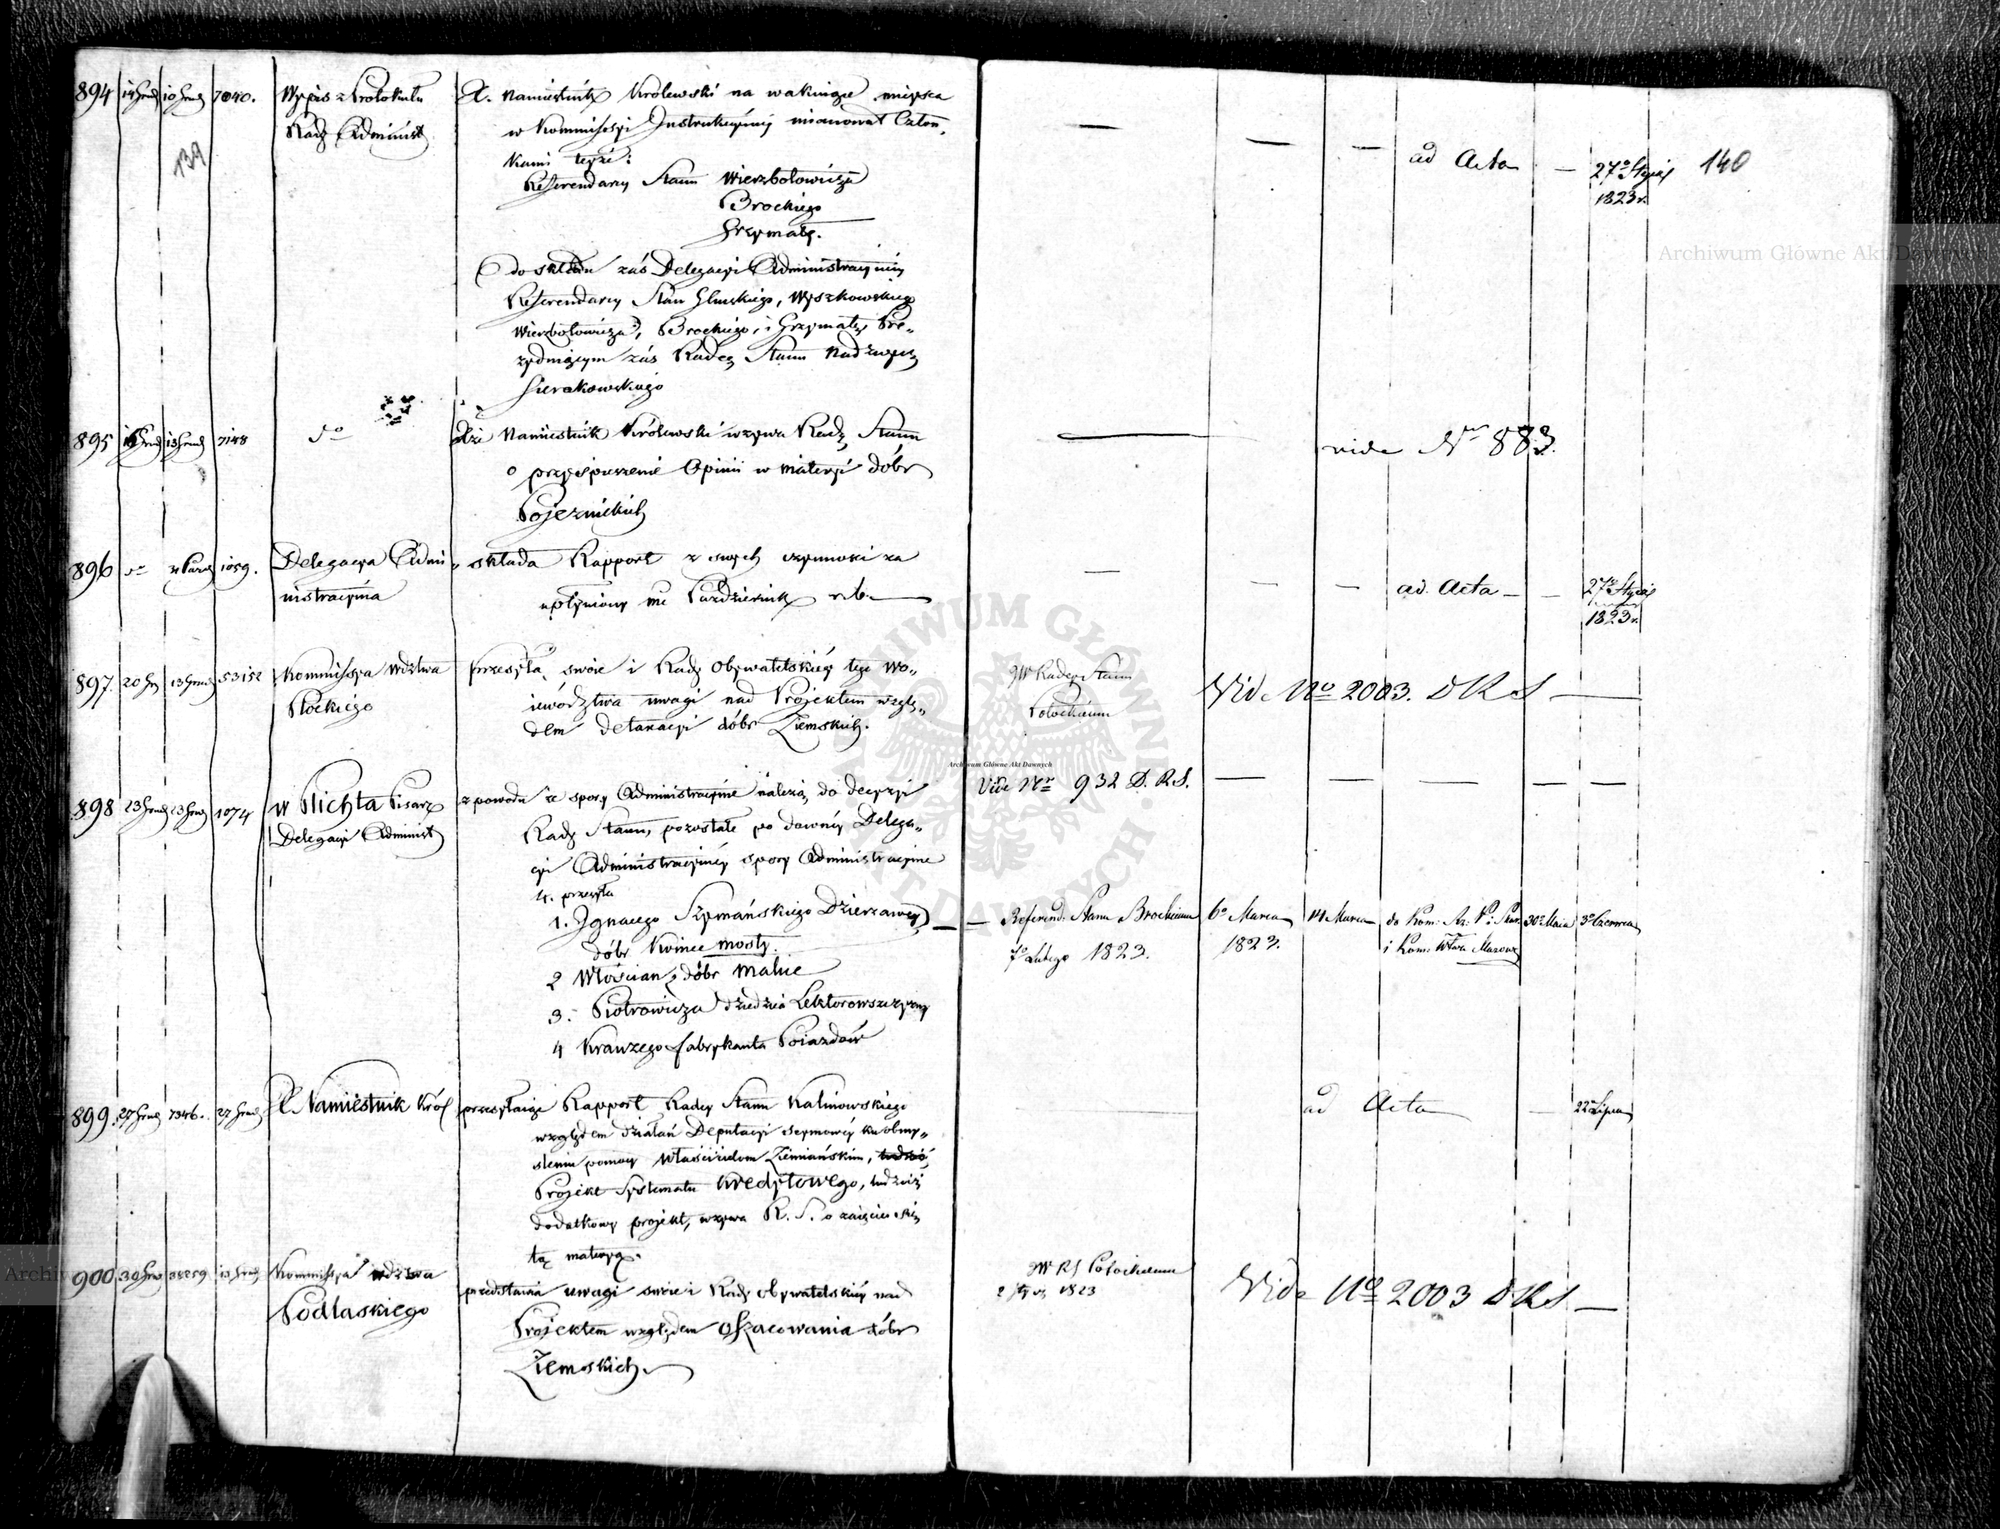 894 14 Grud 10 Grud 7040. Wypis z Protokułu X. Namiestnik Królewski na wakuiące mieysca
Rady Administ w Kommissyi Instrukcyiney mianował Człon,
139 kami teyże:
Referendarzy Stanu Wierzbołowicza
Brockiego
Grzymałę.
do składu zaś Delegacyi Administracyiney
Referendarzy Stanu Glinskiego, Wyszkowskiego
Wierzbołowicza, Brockiego, i Grzymałę Pre-
zyduiącym zaś Radcę Stanu Nadzwycz
Sierakowskiego
— — — ad Acta — 27º Stycz
1823 r.
140
895 13 Grud 7148 dº Xże Namiestnik Królewski wzywa Radę Stanu
o przyspieszenie Opinii w materyi dóbr
Pojezuickich
— vide Nr 883.
896 dº 1059. Delegacya Admi- składa Rapport z swych czynności za
nistracyina upłyniony mc Październik r. b. —
— — — ad. Acta — — 27º Stycz
1823 r.
897. 20 Gr 13 Grud 53152 Kommissya Wdztwa przesyła swoie i Rady Obywatelskiey tego Wo-
Płockiego iewództwa uwagi nad Projektem wzglę-
dem detaxacyi dóbr Ziemskich.
JW Radcy Stanu
Potockiemu
Vide No 2003. DRS —
898 23 Grud 23 Grud 1074 W Plichta Pisarz z powodu że spory Administracyine należą do decyzyi
Delegacyi Administ Rady Stanu, pozostałe po dawney Delega-
cyi Administracyiney spory Administracyine
4. przesyła
1. Ignacego Szymańskiego Dzierzawcy
dóbr Koince mosty.
2 Włościan z dóbr Malice
3. Piotrowicza dziedzica Lektorowszczyzny
4 Krauzego fabrykanta Poiazdów
Vide Nr 932 D. R. S. — — — — —
— Referend. Stanu Brockiemu 6º Marca 14 Marca do Kom: Rz. P. i Skar 30º Maia 3º Czerwca
7º Lutego 1823. 1823. i Kom: Wtwa Mazow
899. 27 Grud 7346. 27 Grud X Namiestnik Król przesyłaiąc Rapport Radcy Stanu Kalinowskiego
względem działań Deputacyi seymowey ku obmy-
śleniu pomocy Właścicielom Ziemiańskim,
Projekt Systematu Kredytowego, tudzież
dodatkowy projekt, wzywa R. S. o zaięcie się
tą materyą.
ad Acta — 22º Lipca
900 30 Grud 38259 13 Grud Kommissya Wdztwa przedstawia uwagi swoie i Rady Obywatelskiey nad
Podlaskiego Projektem względem oszacowania dóbr
Ziemskich.
JW RS Potockiemu
2 Stycz 1823
Vide No 2003 DRS —
Archiwum Główne Akt Dawnych